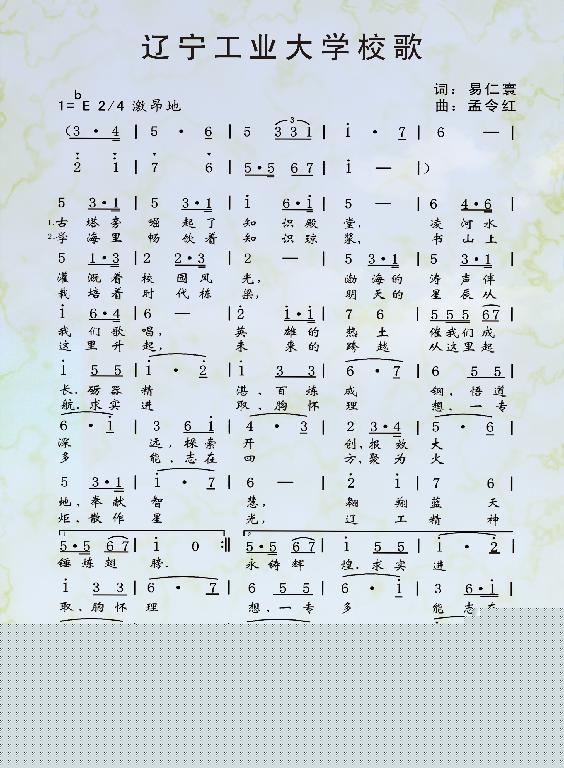 辽宁工业大学校歌
词：易仁寰
1=ᵇE 2/4 激昂地
曲：孟令红
(3·4 | 5 · 6 | 5 3 3 1 | i · 7 | 6 — |
2 1 | 7 6 | 5·5 6 7 | i — |)
5 3·1 | 5 3·1 | i 6·i | 5 — | 6 4·6 |
1.古塔旁 崛起了 知识殿堂， 凌河水
2.学海里 畅饮着 知识琼浆， 书山上
5 1·3 | 2 2·3 | 2 — | 5 3·1 | 5 3·1 |
灌溉着 校园风光， 渤海的 涛声伴
我培着 时代栋梁， 明天的 星辰从
1 6·4 | 6 — | 2 i·i | 7 6 | 5 5 5 6 7 |
我们歌唱， 英雄的 热土 催我们成
这里升起， 未来的 跨越 从这里起
i 5 5 | i · 2 | i 3 3 | 6 · 7 | 6 5 5 |
长.砺器精 湛，百炼成 钢，悟道
航.求实进 取，胸怀理 想，一专
6 · i | 3 6 i | 4 · 3 | 2 3·4 | 5 · 6 |
深 远，探索开 创，报效大
多 能，志在四 方，聚为火
5 3·1 | i · 7 | 6 — | 2 i | 7 6 |
地，奉献智 慧， 翱翔蓝天
炬，散作星 光， 辽工精神
5·5 6 7 | i 0 :‖ 5·5 6 7 | i 5 5 | i · 2 |
锤炼翅膀. 永铸辉 煌.求实 进
i 3 3 | 6 · 7 | 6 5 5 | 6 · i | 3 6·i |
取，胸怀理 想，一专多 能志在